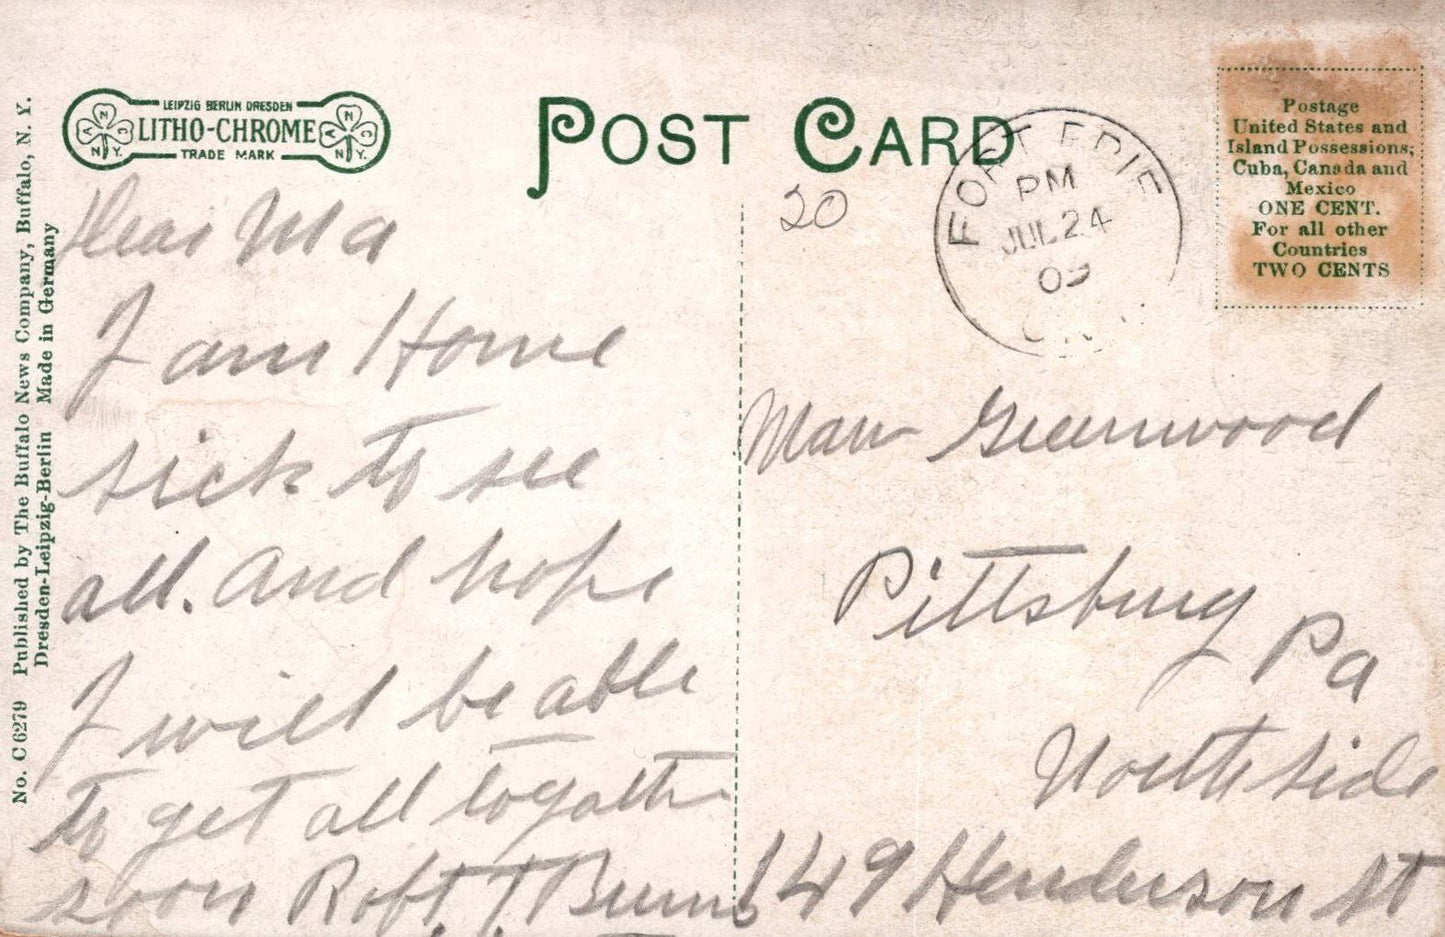 LEIPZIG BERLIN DRESDEN
LITHO-CHROME
TRADE MARK
N.Y.
N.Y.
POST CARD
No. C 6279 Published by The Buffalo News Company, Buffalo, N. Y.
Dresden-Leipzig-Berlin Made in Germany
Postage
United States and
Island Possessions;
Cuba, Canada and
Mexico
ONE CENT.
For all other
Countries
TWO CENTS
20
FORT ERIE
PM
JUL 24
09
ONT
Dear Ma
I am Home
sick to see
all. and hope
I will be able
to get all togath
soon Robt. T Burns
Greenwood
Pittsburg
Pa
North Side
149 Henderson St